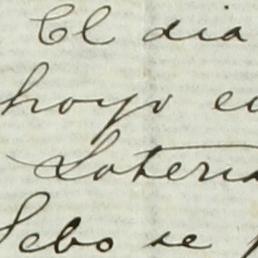 El dia
hoyo e
Loteria
Sebo se